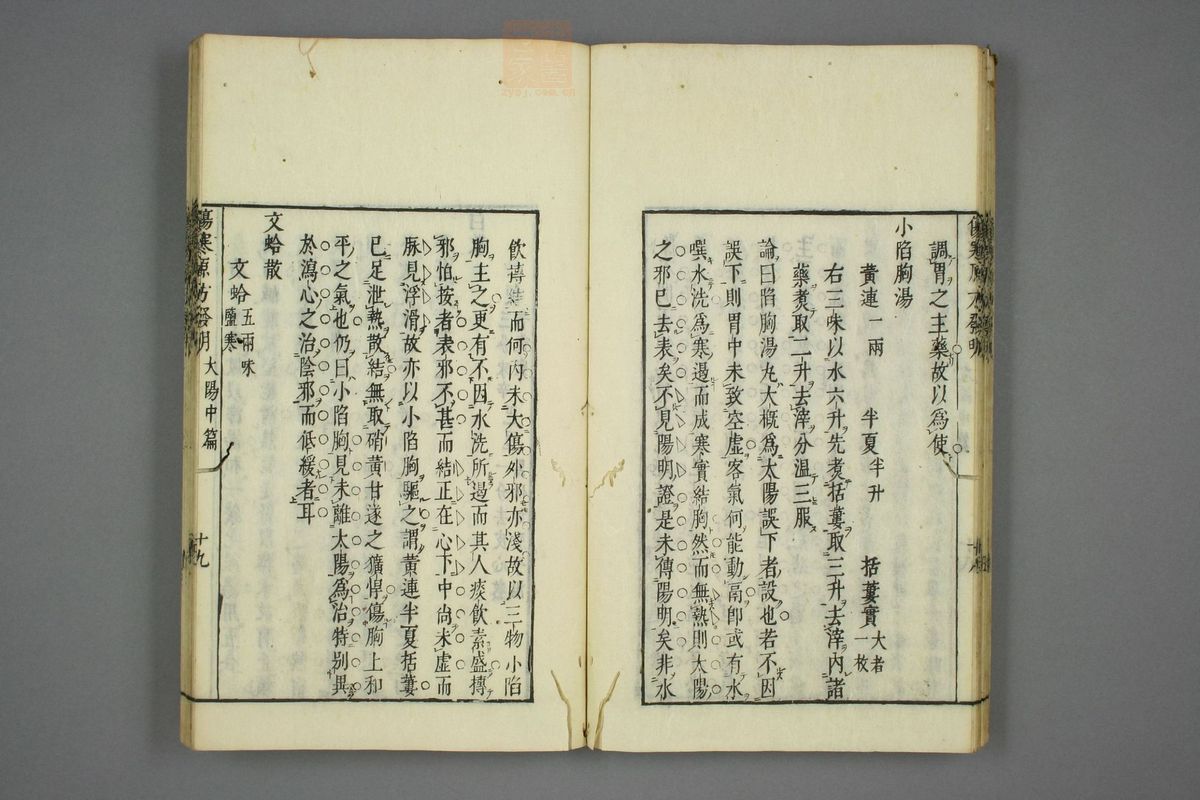 調胃之主藥故以為使
小陷胸湯
黃連一兩 半夏半升 括蔞實大者一枚
右三味以水六升先煑括蔞取三升去滓內諸
藥煑取二升去滓分温三服
論曰陷胸湯丸大概爲太陽誤下者設也若不因
誤下則胃中未致空虛客氣何能動膈卽或有水
噀水洗爲寒遏而成寒實結胸然而無熱則太陽
之邪已去表矣不見陽明證是未傳陽明矣非水
飲摶結而何內未大傷外邪亦淺故以三物小陷
胸主之更有不因水洗所遏而其人痰飲素盛摶
邪怕按者表邪不甚而結正在心下中尚未虛而
脉見浮滑故亦以小陷胸驅之謂黃連半夏括蔞
已足泄熱散結無取硝黃甘遂之獷悍傷胸上和
平之氣也仍曰小陷胸見未離太陽爲治特別異
於瀉心之治陰邪而低緩者耳
文蛤散
文蛤五兩味鹽寒
傷寒源方發明 大陽中篇 十九
zyoj.com.cn